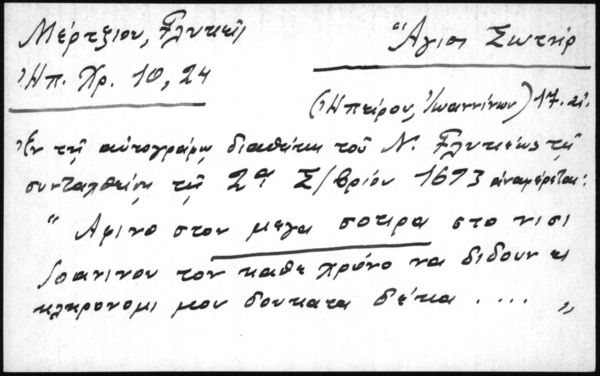 Μέρτζιου, Γλυκεῖς
Ἅγιος Σωτήρ
Ἠπ. Χρ. 10, 24
(Ἠπείρου, Ἰωαννίνων) 17. αἰ.
Ἐν τῇ αὐτογράφῳ διαθήκῃ τοῦ Ν. Γλυκέως τῇ
συνταχθείσῃ τῇ 2ᾳ Σ/βρίου 1693 ἀναφέρεται:
" Αφινο στον μεγα σοτιρα στο νισι
Ιοανινου τον καθε χρόνο να διδουν ει
κλιρονομι μου δουκατα δέκα . . . . "